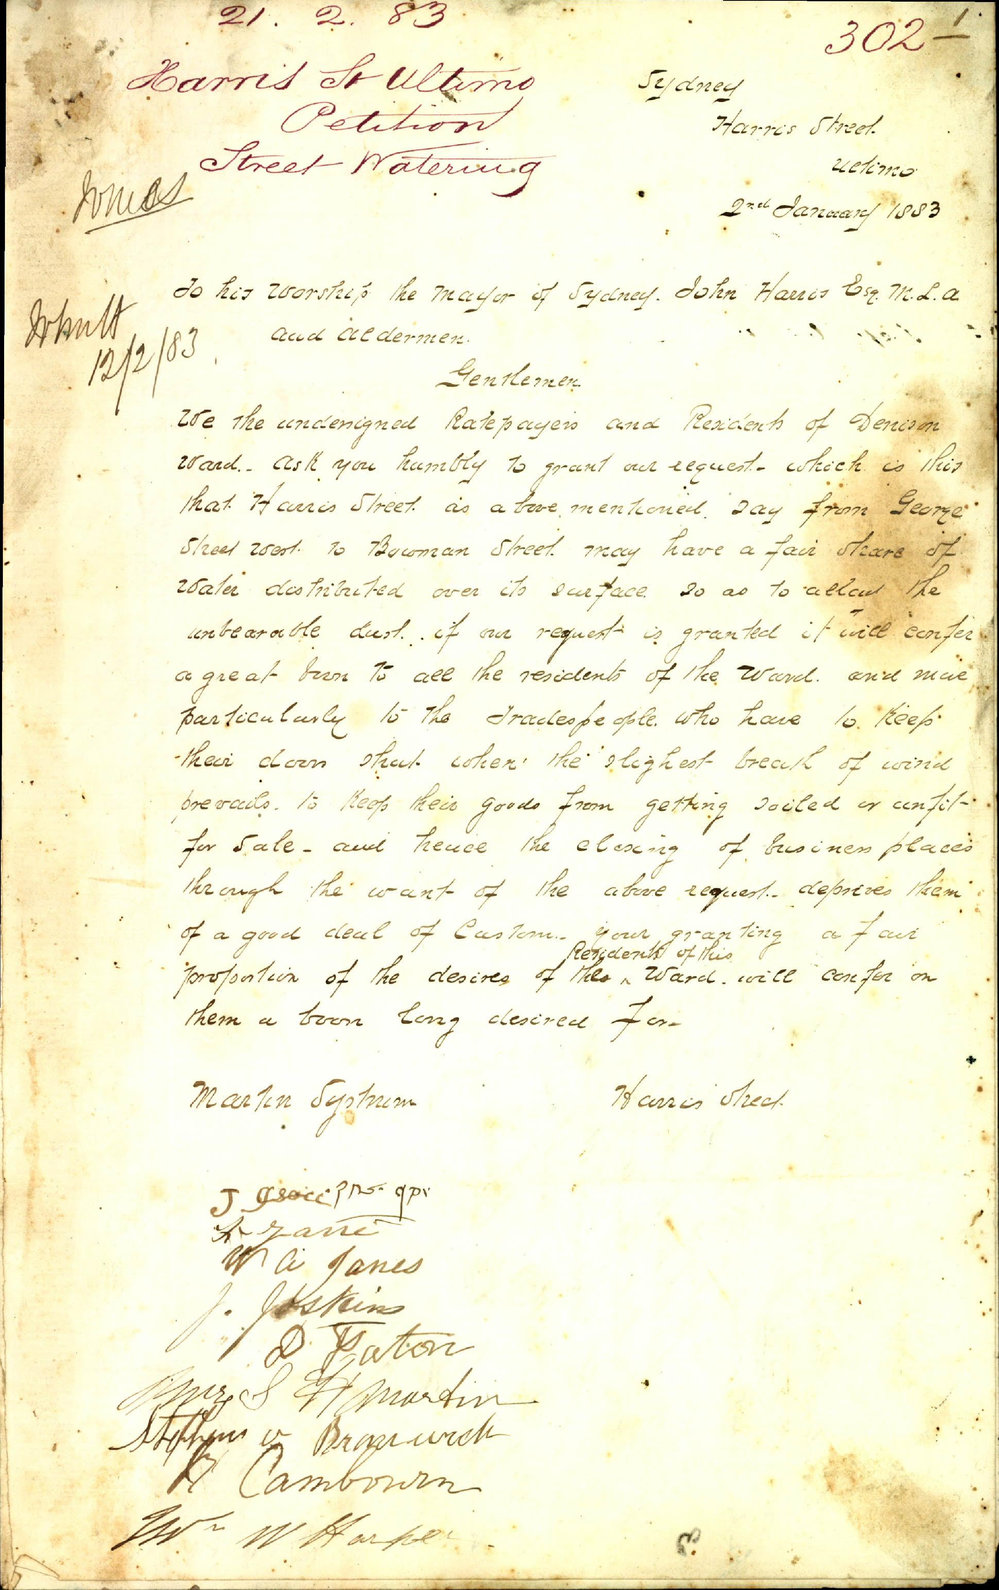 21. 2. 83
302 1
Harris St Ultimo
Petition
Street Watering
Sydney
Harris Street
Ultimo
2nd January 1883
Jones
12/2/83
To his Worship the Mayor of Sydney. John Harris Esq. M.L.a
and Aldermen.
Gentlemen
We the undersigned Ratepayers and Residents of Denison
Ward. - ask you humbly to grant our request - which is this
that Harris Street as above mentioned. say from George
Street West to Bowman Street may have a fair share of
Water distributed over its surface so as to allay the
unbearable dust. if our request is granted it will confer
a great boon to all the residents of the Ward. and more
particularly to the Tradespeople who have to keep
their doors shut when the slighest breath of wind
prevails. to keep their goods from getting soiled or unfit
for Sale - and hence the closing of business places
through the want of the above request - deprives them
of a good deal of Custom - your granting a fair
Residents of this
proportion of the desires of the ^ Ward. will confer on
them a boon long desired for -
Martin Systrum Harris Street
J
W A Jones
J. Hoskins
D Paton
S H Martin
Stephen W Bramwich
H Cambourn
Wm W Harper
3